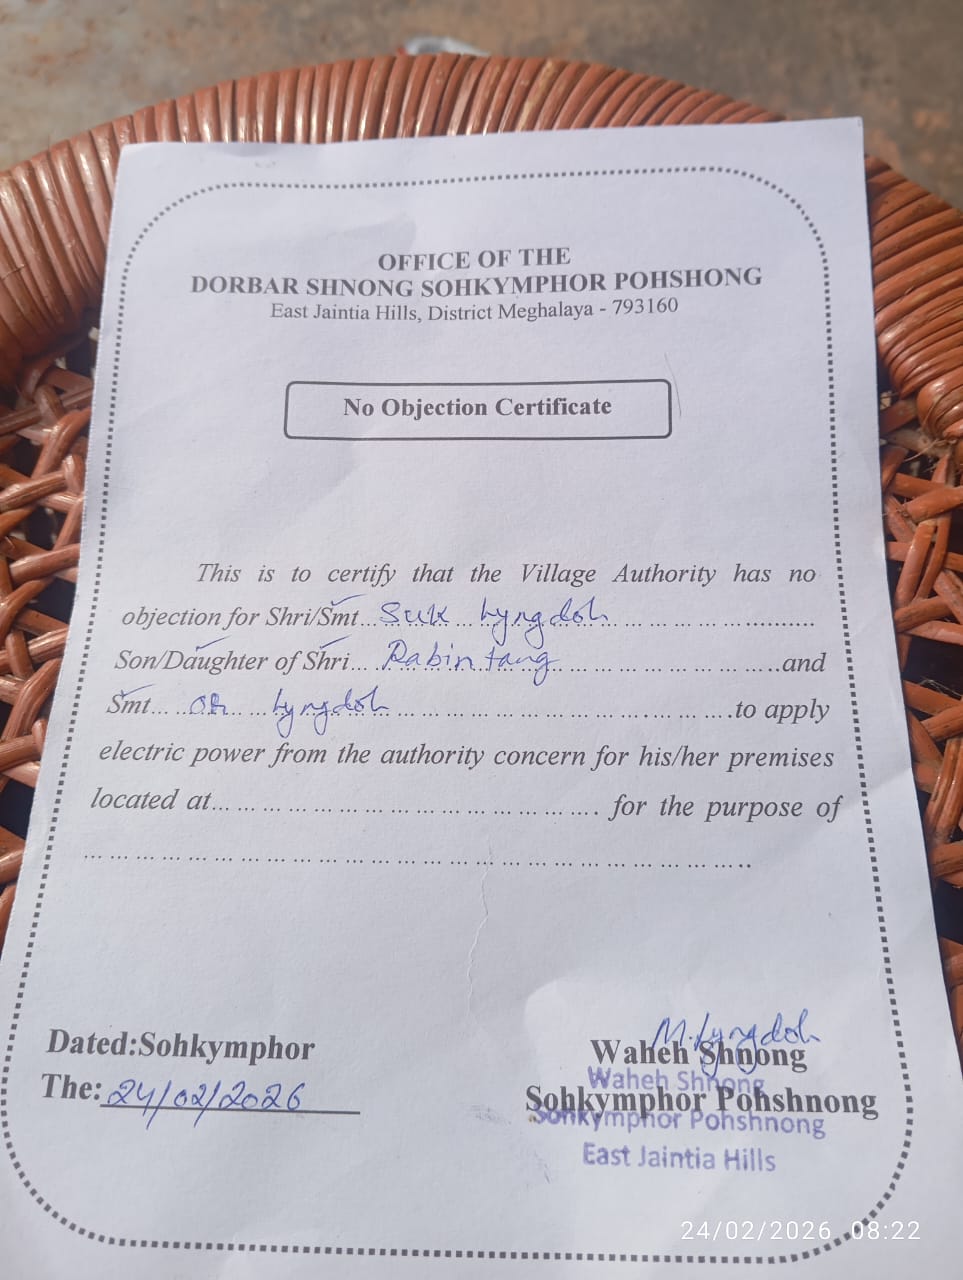 OFFICE OF THE
DORBAR SHNONG SOHKYMPHOR POHSHONG
East Jaintia Hills, District Meghalaya - 793160
No Objection Certificate
This is to certify that the Village Authority has no
objection for Shri/Smt... Suk Lyngdoh ..........
Son/Daughter of Shri... Rabin tang ..........and
Smt... Lyngdoh ..........to apply
electric power from the authority concern for his/her premises
located at.......... for the purpose of
..........
Dated:Sohkymphor
The: 24/02/2026
M. Lyngdoh
Waheh Shnong
Waheh Shnong
Sohkymphor Pohshnong
Sohkymphor Pohshnong
East Jaintia Hills
24/02/2026 08:22